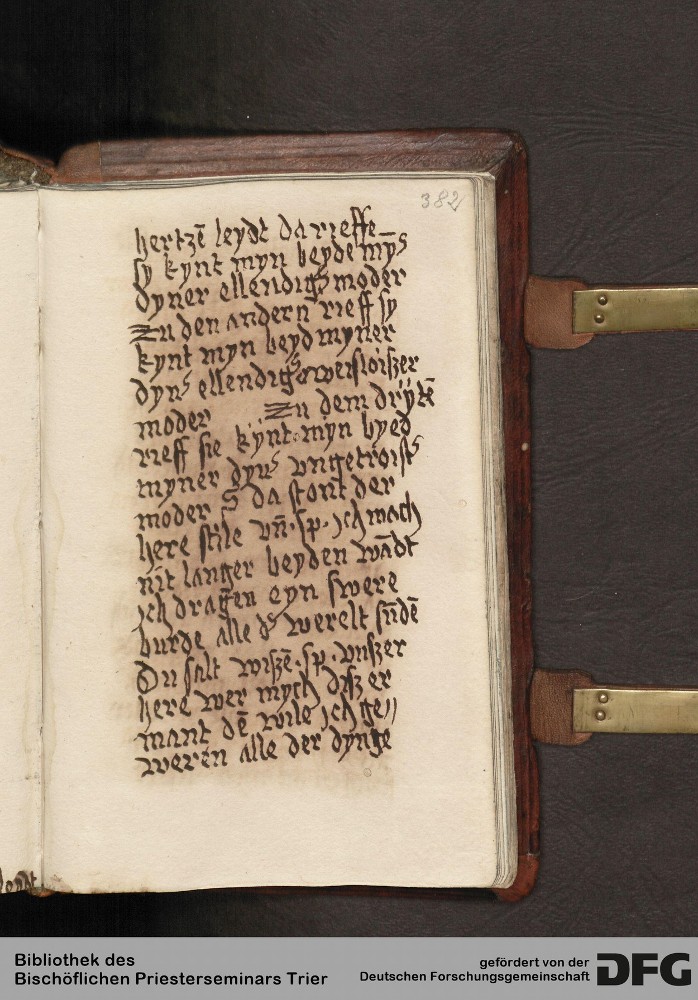 382
hertzē leydt da rieffe
sy kynt myn beyde mȳs
dyner ellendigs moder
Zu den andern rieff sy
kynt myn beyd myner
dyns ellendigs
moder Zu dem drÿtē
rieff sie kÿnt myn byed
myner dyns vngetroists
moder da stont der
here stile vn̄ · sp · jch mach
nit langer beyden wādt
jch dragen eyn swere
burde alle ds werelt sūdē
Du salt wiszē · sp · vnszer
here wer mych disz er
mant dē wile jch ge〃
weren alle der dynge
Bibliothek des
Bischöflichen Priesterseminars Trier
gefördert von der
Deutschen Forschungsgemeinschaft
DFG